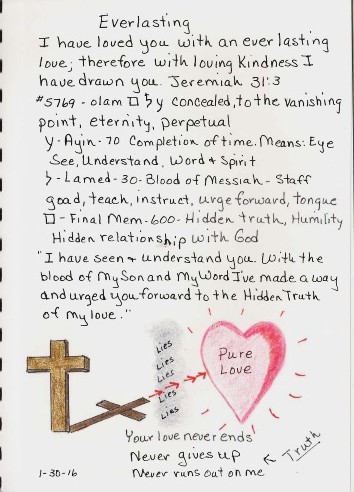 Everlasting
I have loved you with an everlasting
love; therefore with loving Kindness I
have drawn you. Jeremiah 31:3
#5769 - olam ם ל ע Concealed, to the vanishing
point, eternity, perpetual
ע - Ayin - 70 Completion of time. Means: Eye
See, Understand, Word & Spirit
ל - Lamed - 30 - Blood of Messiah - Staff
goad, teach, instruct, urge forward, tongue
ם - Final Mem - 600 - Hidden truth, Humility
Hidden relationship with God
"I have seen + understand you. With the
blood of My Son and My Word I've made a way
and urged you forward to the Hidden Truth
of my love."
Lies
Lies
Lies
Lies
Lies
Lies
Pure
Love
Your love never ends
Never gives up
Never runs out on me
Truth
1-30-16